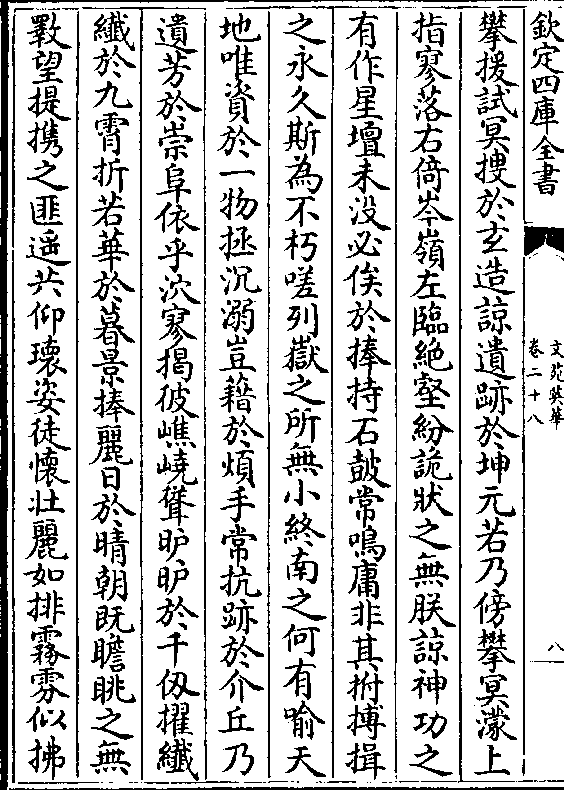 欽定四庫全書
文苑英華
卷二十八
八
攀援試冥搜於玄造諒遺跡於坤元若乃傍攀冥濛上
指寥落右倚岑嶺左臨絶壑紛詭狀之無朕諒神功之
有作星壇未没必俟於捧持石皷常鳴庸非其拊搏揖
之永久斯為不朽嗟列嶽之所無小終南之何有喻天
地唯資於一物拯沉溺豈藉於煩手常抗跡於介丘乃
遺芳於崇阜依乎泬寥揭彼嶕嶢聳昈昈於千仭擢纎
纎於九霄折若華於暮景捧麗日於晴朝既瞻眺之無
斁望提攜之匪遥共仰瓌姿徒懷壯麗如排霧雰似拂